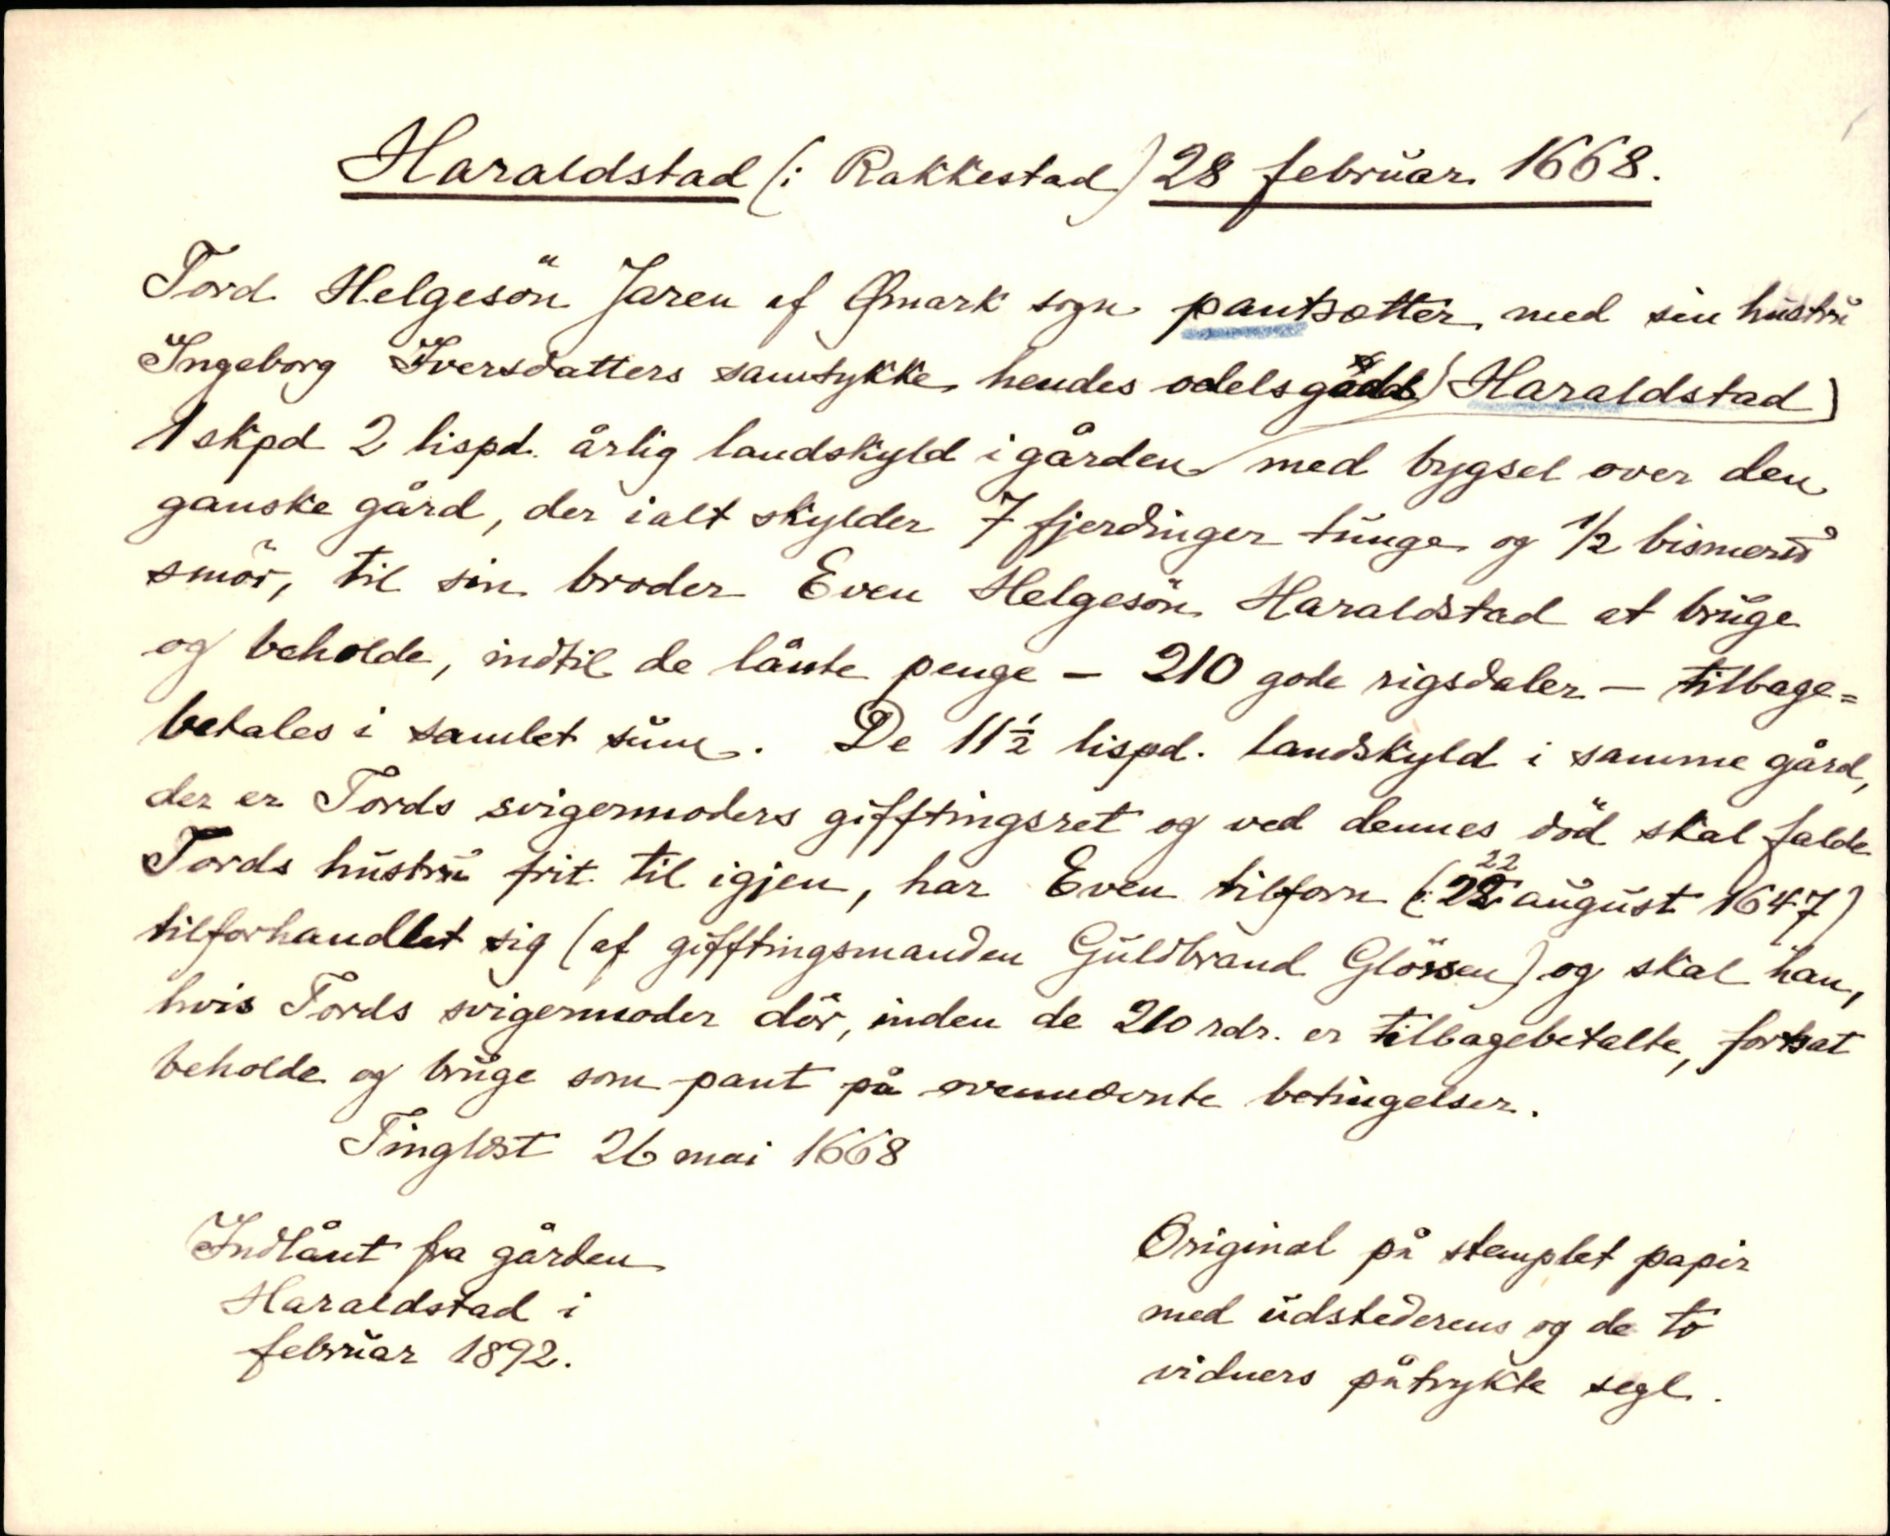 Haraldstad (i Rakkestad) 28 februar 1668.
Tord Helgesön Jaren af Ømark sogn pantsætter med sin hustru
Ingeborg Iversdatters samtykke hendes odelsgods (Haraldstad)
1 skpd 2 lispd. årlig landskyld i gården med bygsel over den
ganske gård, der ialt skylder 7 fjerdinger tunge og 1/2 bismerpd
smör, til sin broder Even Helgesön Haraldstad at bruge
og beholde, indtil de lånte penge – 210 gode rigsdaler – tilbage=
betales i samlet sum. De 11½ lispd. landskyld i samme gård,
der er Tords svigermoders gifftingsret og ved dennes död skal falde
Tords hustru frit til igjen, har Even tilforn (22 august 1647)
tilforhandlet sig (af gifftingsmanden Guldbrand Glörsen) og skal han,
hvis Tords svigermoder dör, inden de 210 rdr. er tilbagebetalte, fortsat
beholde og bruge som pant på ovennævnte betingelser.
Tinglæst 26 mai 1668
Indlånt fra gården
Haraldstad i
februar 1892.
Original på stemplet papir
med udstederens og de to
vidners påtrykte segl.